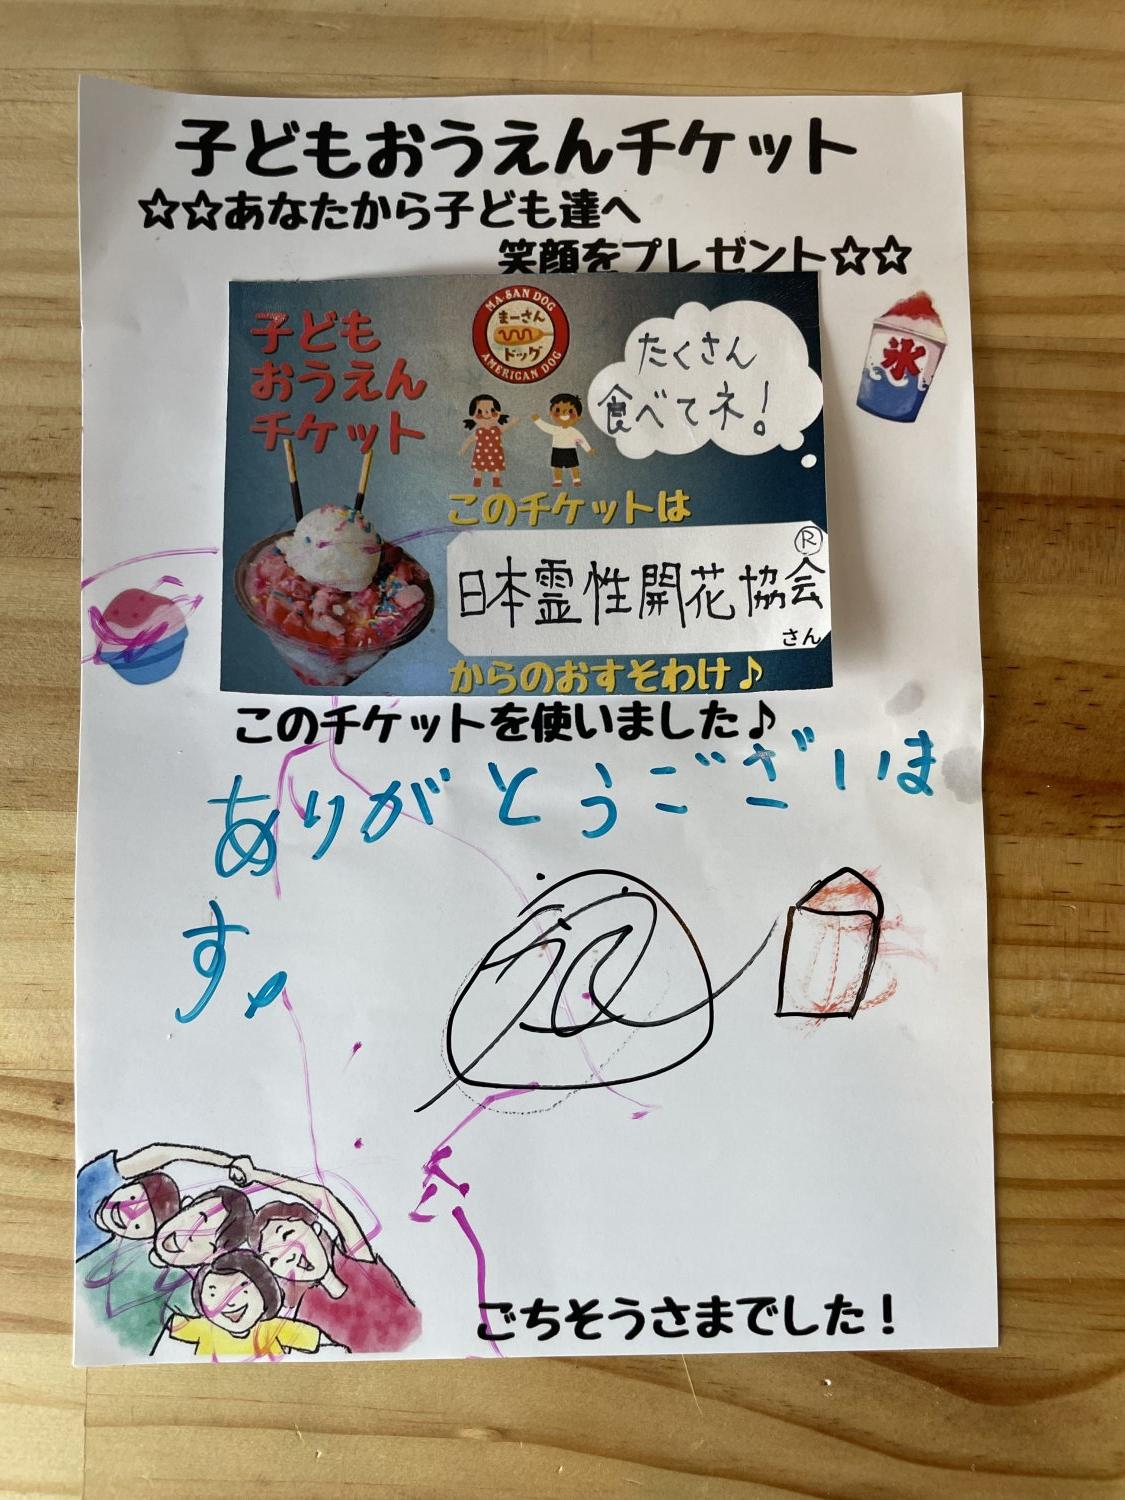 子どもおうえんチケット
☆☆あなたから子ども達へ
笑顔をプレゼント☆☆
子ども
おうえん
チケット
MA SAN DOG
まーさん
ドッグ
AMERICAN DOG
たくさん
食べてネ!
氷
このチケットは
日本霊性開花協会®
さん
からのおすそわけ♪
このチケットを使いました♪
ありがとうございま
す。
ごちそうさまでした!